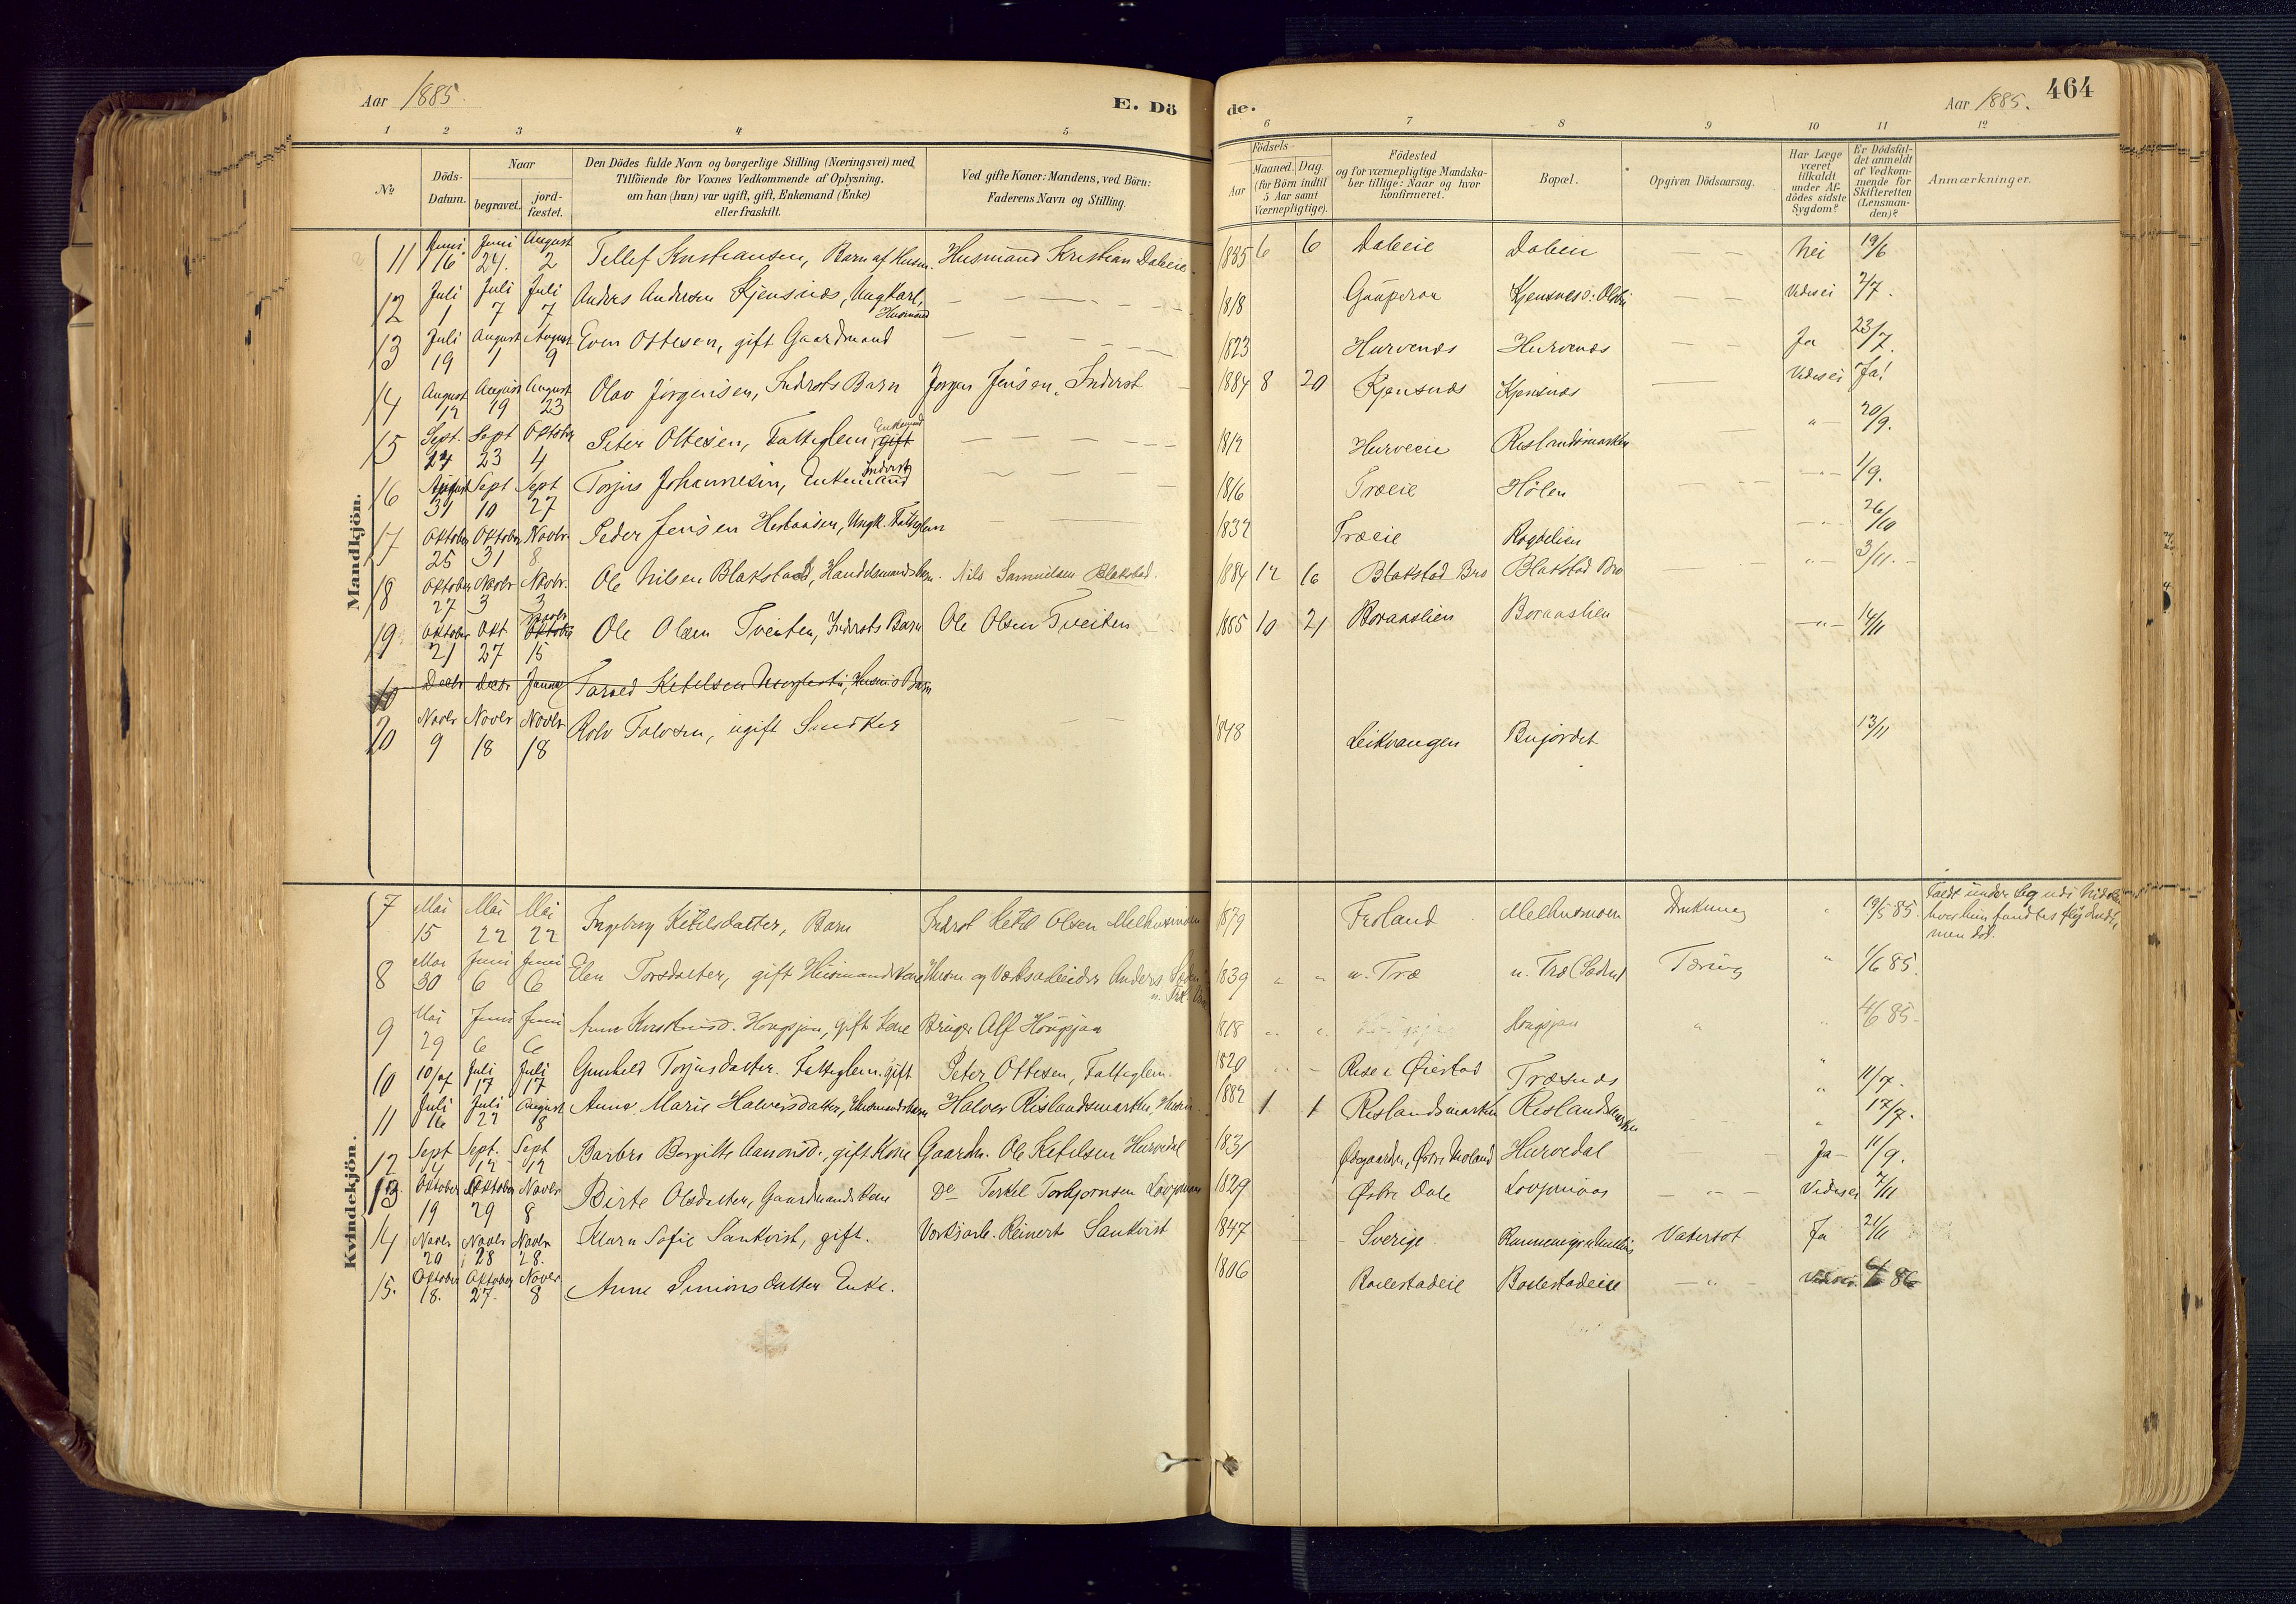 Aar 1885.
E. Dö
de.
Aar 1885.
464
1 2 3 4 5 6 7 8 9 10 11 12
No
Döds-
Datum.
Naar
begravet.
jord-
fæstet.
Den Dödes fulde Navn og borgerlige Stilling (Næringsvei) med
Tilföiende for Voxnes Vedkommende af Oplysning,
om han (hun) var ugift, gift, Enkemand (Enke)
eller fraskilt.
Ved gifte Koner: Mandens, ved Börn:
Faderens Navn og Stilling.
Födsels-
Aar
Maaned. Dag.
(for Börn indtil
5 Aar samt
Værnepligtige).
Födested
og for værnepligtige Mandska-
ber tillige: Naar og hvor
konfirmeret.
Bopæl.
Opgiven Dödsaarsag.
Har Læge
været
tilkaldt
under Af-
dödes sidste
Sygdom?
Er Dödsfal-
det anmeldt
af Vedkom-
mende for
Skifteretten
(Lensman-
den)?
Anmærkninger.
Mandkjön.
11 Juni 16 Juni 24. August 2 Tellef Kristiansen, Barn af Husm. Husmand Kristian Daleie 1885 6 6 Daleie Daleie Nei 19/6
12 Juli 1 Juli 7 Juli 7 Anders Andersen Kjensnæs, Ungkarl, Husmand 1818 Kjensnes Vides ei 2/7.
13 Juli 19 August 1 August 9 Even Ottesen, gift Gaardmand 1823 Hurvenæs Hurvenæs Ja 23/7.
14 August 12 August 19 August 23 Olav Jörgensen, Inderts Barn Jörgen Jensen, Inderst 1884 8 20 Kjensnæs Kjensnæs Vides ei Ja!
15 Sept. 14 Sept 23 Oktober 4 Peter Ottesen, Fattiglem, gift Enkemand 1812 Hurveeie Rislandsmarken " 20/9.
16 August 31 Sept 10 Sept 27 Torjus Johannesen, Enkemand Inderst 1816 Træeie Hölen - " - 1/9.
17 Oktober 25 Oktober 31 Novbr. 8 Peder Jensen Ungk. Fattiglem 1832 Træeie - " - 26/10
18 Oktober 27 Novbr 3 Novbr. 3 Ole Nilsen Blakstad, Handelsmands Barn. Nils Samuelsen Blakstad. 1884 12 16 Blakstad Bro Blakstad Bro " 3/11.
19 Oktober 21 Okt 27 Oktober Novbr 15 Ole Olsen Tveiten, Inderts Barn Ole Olsen Tveiten 1885 10 21 Boraaslien Boraaslien - " - 14/11
10 Decbr Decbr Januar Tarald Ketilsen Husm.s Barn
20 Novbr 9 Novbr 18 Novbr 18 Rolv Talvsen, ugift Snedker 1848 Leikvangen Bujordet 13/11
Kvindekjön.
7 Mai 15 Mai 22 Mai 22 Ingeborg Ketilsdatter, Barn Inderst Ketil Olsen Melhusmoen 1879 Froland Melhusmoen Drukning " 19/5 85. Faldt under Leg ud i Nidelven
hvor hun fandtes flydende,
men död.
8 Mai 30 Juni 6 Juni 6 Elen Torsdatter, gift Husmands Kone Husm og Værksarbeider Anders 1839 " " n. Træ n. Træ Tæring " 1/6 85.
9 Mai 29 Juni 6 Juni 6 Anne Hougsjaa, gift Kone Bruger Alf Hougsjaa 1818 " " Hougsjaa " " 4/6 85.
10 10/07 Juli 17 Juli 17 Gunhild Torjusdatter. Fattiglem. gift Peter Ottesen, Fattiglem. 1820 Rise i Öiestad Træsnæs " 11/7.
11 Juli 16 Juli 22 August 8 Anne Marie Halvorsdatter, Husmands Barn Halvor Rislandsmarken, Husm. 1882 1 1 Rislandsmarken Rislandsmarken " 17/7.
12 Sept 4 Sept. 12 Sept 12 Barbro Bergitte Aanonsd., gift Kone Gaardm. Ole Ketilsen Hurvedal 1831 Östre Moland Hurvedal Ja 11/9.
13 Oktober 19 Oktober 29 Novbr 8 Birte Olsdatter, Gaardmands Kone Do Terkel Torbjörnsen 1829 Östre Dale - " - Vides ei 7/11
14 Novbr 20 Novbr 28 Novbr 28. Klara Sofie Sankvist, gift. Værksarb. Reinert Sankvist 1847 Sverige Vatersot Ja 21/11
15. Oktober 18. Oktober 27. Novbr 8 Anne Simonsdatter Enke. 1806 Boilestadeie Boilestadeie - " - Vides ei 86